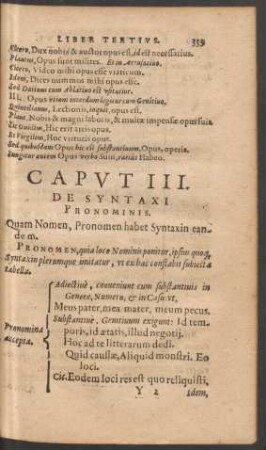 LIBER TERTIVS. 339
Cicero, Dux nobis & auctor opus est, id est necessarius.
Plautus, Opus sunt milites. Et in Accusatiuo.
Cicero, Video mihi opus esse viaticum,
Idem, Dices nummos mihi opus esse.
Sed Datiuus cum Ablatiuo est vsitatior.
III. Opus etiam interdum legitur cum Genitiuo.
Quintilianus, Lectionis, inquit, opus est.
Plaut. Nobis & magni laboris, & multæ impensæ opus fuit.
Hic virtutis opus.
Sed quibusdam Opus hic est substantiuum, Opus, operis.
Iungitur autem Opus verbo Sum, rarius Habeo.
CAPVT III.
DE SYNTAXI
PRONOMINIS.
Quam Nomen, Pronomen habet Syntaxin ean-
dem.
PRONOMEN, quia loco Nominis ponitur, ipsius quoq;
Syntaxin plerumque imitatur, vt ex hac constabit subiecta
tabella.
Adiectiuè, conueniunt cum substantiuis in
Genere, Numero, & in Casu. vt,
Meus pater, mea mater, meum pecus.
Substantiuè, Genitiuum exigunt: Id tem-
Pronomina
accepta.
poris, id ætatis, illud negotij.
Hoc ad te litterarum dedi.
Quid causæ, Aliquid monstri. Eo
loci.
Cic. Eodem loci res est quo reliquisti,
Y 2 Idem,